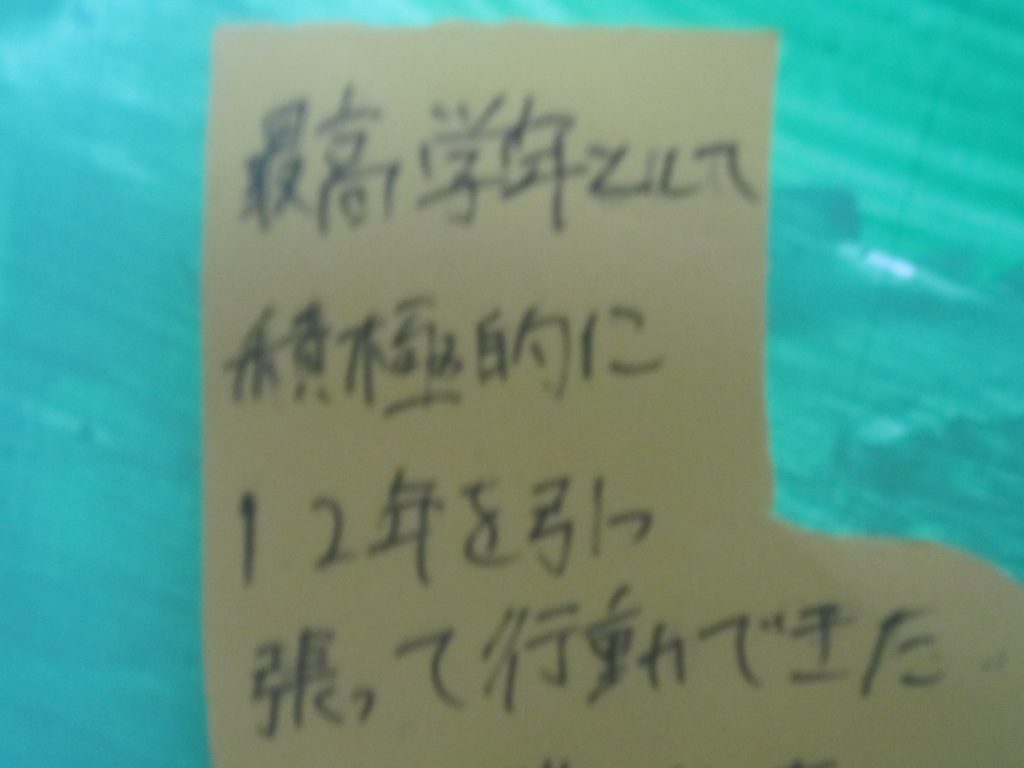 最高学年として
積極的に
12年を引っ
張って行動できた